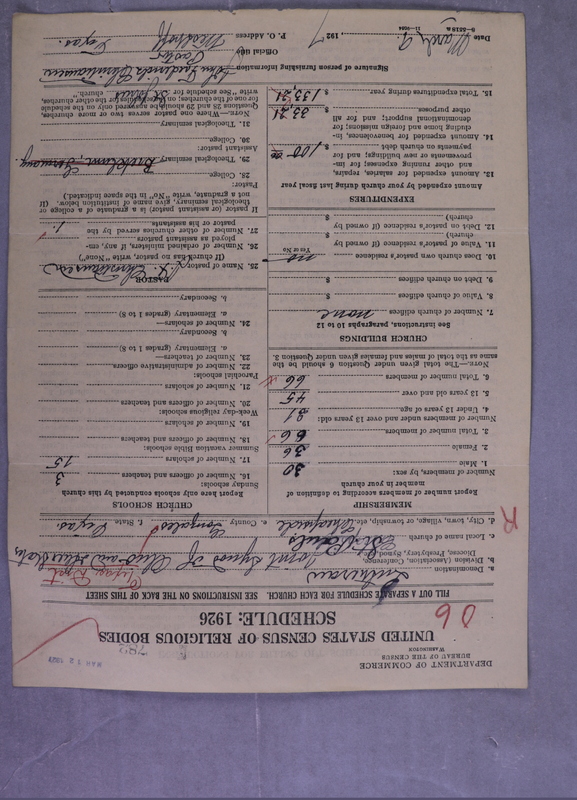 DEPARTMENT OF COMMERCE
BUREAU OF THE CENSUS
WASHINGTON
MAR 12 1927
782
UNITED STATES CENSUS OF RELIGIOUS BODIES
SCHEDULE: 1926
06
FILL OUT A SEPARATE SCHEDULE FOR EACH CHURCH. SEE INSTRUCTIONS ON THE BACK OF THIS SHEET
a. Denomination Lutheran
b. Division (Association, Conference, Diocese, Presbytery, Synod, etc.) Joint Synod of Ohio and other States
Texas Dist
c. Local name of church St. Pauls
d. City, town, village, or township, etc. Cheapside e. County Gonzales f. State Texas.
R
MEMBERSHIP
Report number of members according to definition of
member in your church
Number of members, by sex:
1. Male 30
2. Female 36
3. Total number of members 66
Number of members under and over 13 years old:
4. Under 13 years of age 21
5. 13 years old and over 45
6. Total number of members 66
NOTE.—The total given under Question 6 should be the
same as the total of males and females given under Question 3.
CHURCH BUILDINGS
See instructions, paragraphs 10 to 12
7. Number of church edifices none
8. Value of church edifices $
9. Debt on church edifices $
10. Does church own pastor's residence no
Yes or No
11. Value of pastor's residence (if owned by
church) $
12. Debt on pastor's residence (if owned by
church) $
EXPENDITURES
Amount expended by your church during last fiscal year
13. Amount expended for salaries, repairs,
and other running expenses; for im-
provements or new buildings; and for
payments on church debt $ 100 00
14. Amount expended for benevolences, in-
cluding home and foreign missions; for
denominational support; and for all
other purposes $ 33,21
15. Total expenditures during year $ 133,21
CHURCH SCHOOLS
Report here only schools conducted by this church
Sunday schools:
16. Number of officers and teachers 3
17. Number of scholars 15
Summer vacation Bible schools:
18. Number of officers and teachers
19. Number of scholars
Week-day religious schools:
20. Number of officers and teachers
21. Number of scholars
Parochial schools:
22. Number of administrative officers
23. Number of teachers—
a. Elementary (grades 1 to 8)
b. Secondary
24. Number of scholars—
a. Elementary (grades 1 to 8)
b. Secondary
PASTOR
25. Name of pastor
(If church has no pastor, write "None")
26. Number of ordained ministers, if any, em-
ployed as assistant pastors
27. Number of other churches served by the
pastor or his assistants 1.
If pastor (or assistant pastor) is a graduate of a college or
theological seminary, give name of institution below. (If
not a graduate, write "No" in the space indicated.)
Pastor:
28. College
29. Theological seminary Breklum, Germany
Assistant pastor:
30. College
31. Theological seminary
NOTE.—Where one pastor serves two or more churches,
Questions 28 and 29 should be answered only on the schedule
for one of the churches; on the schedules for the other churches,
write "See schedule for St. Johns church."
Signature of person furnishing information
Official title Pastor
P. O. Address Westhoff Texas.
Date March 9, 1927
8—5518a